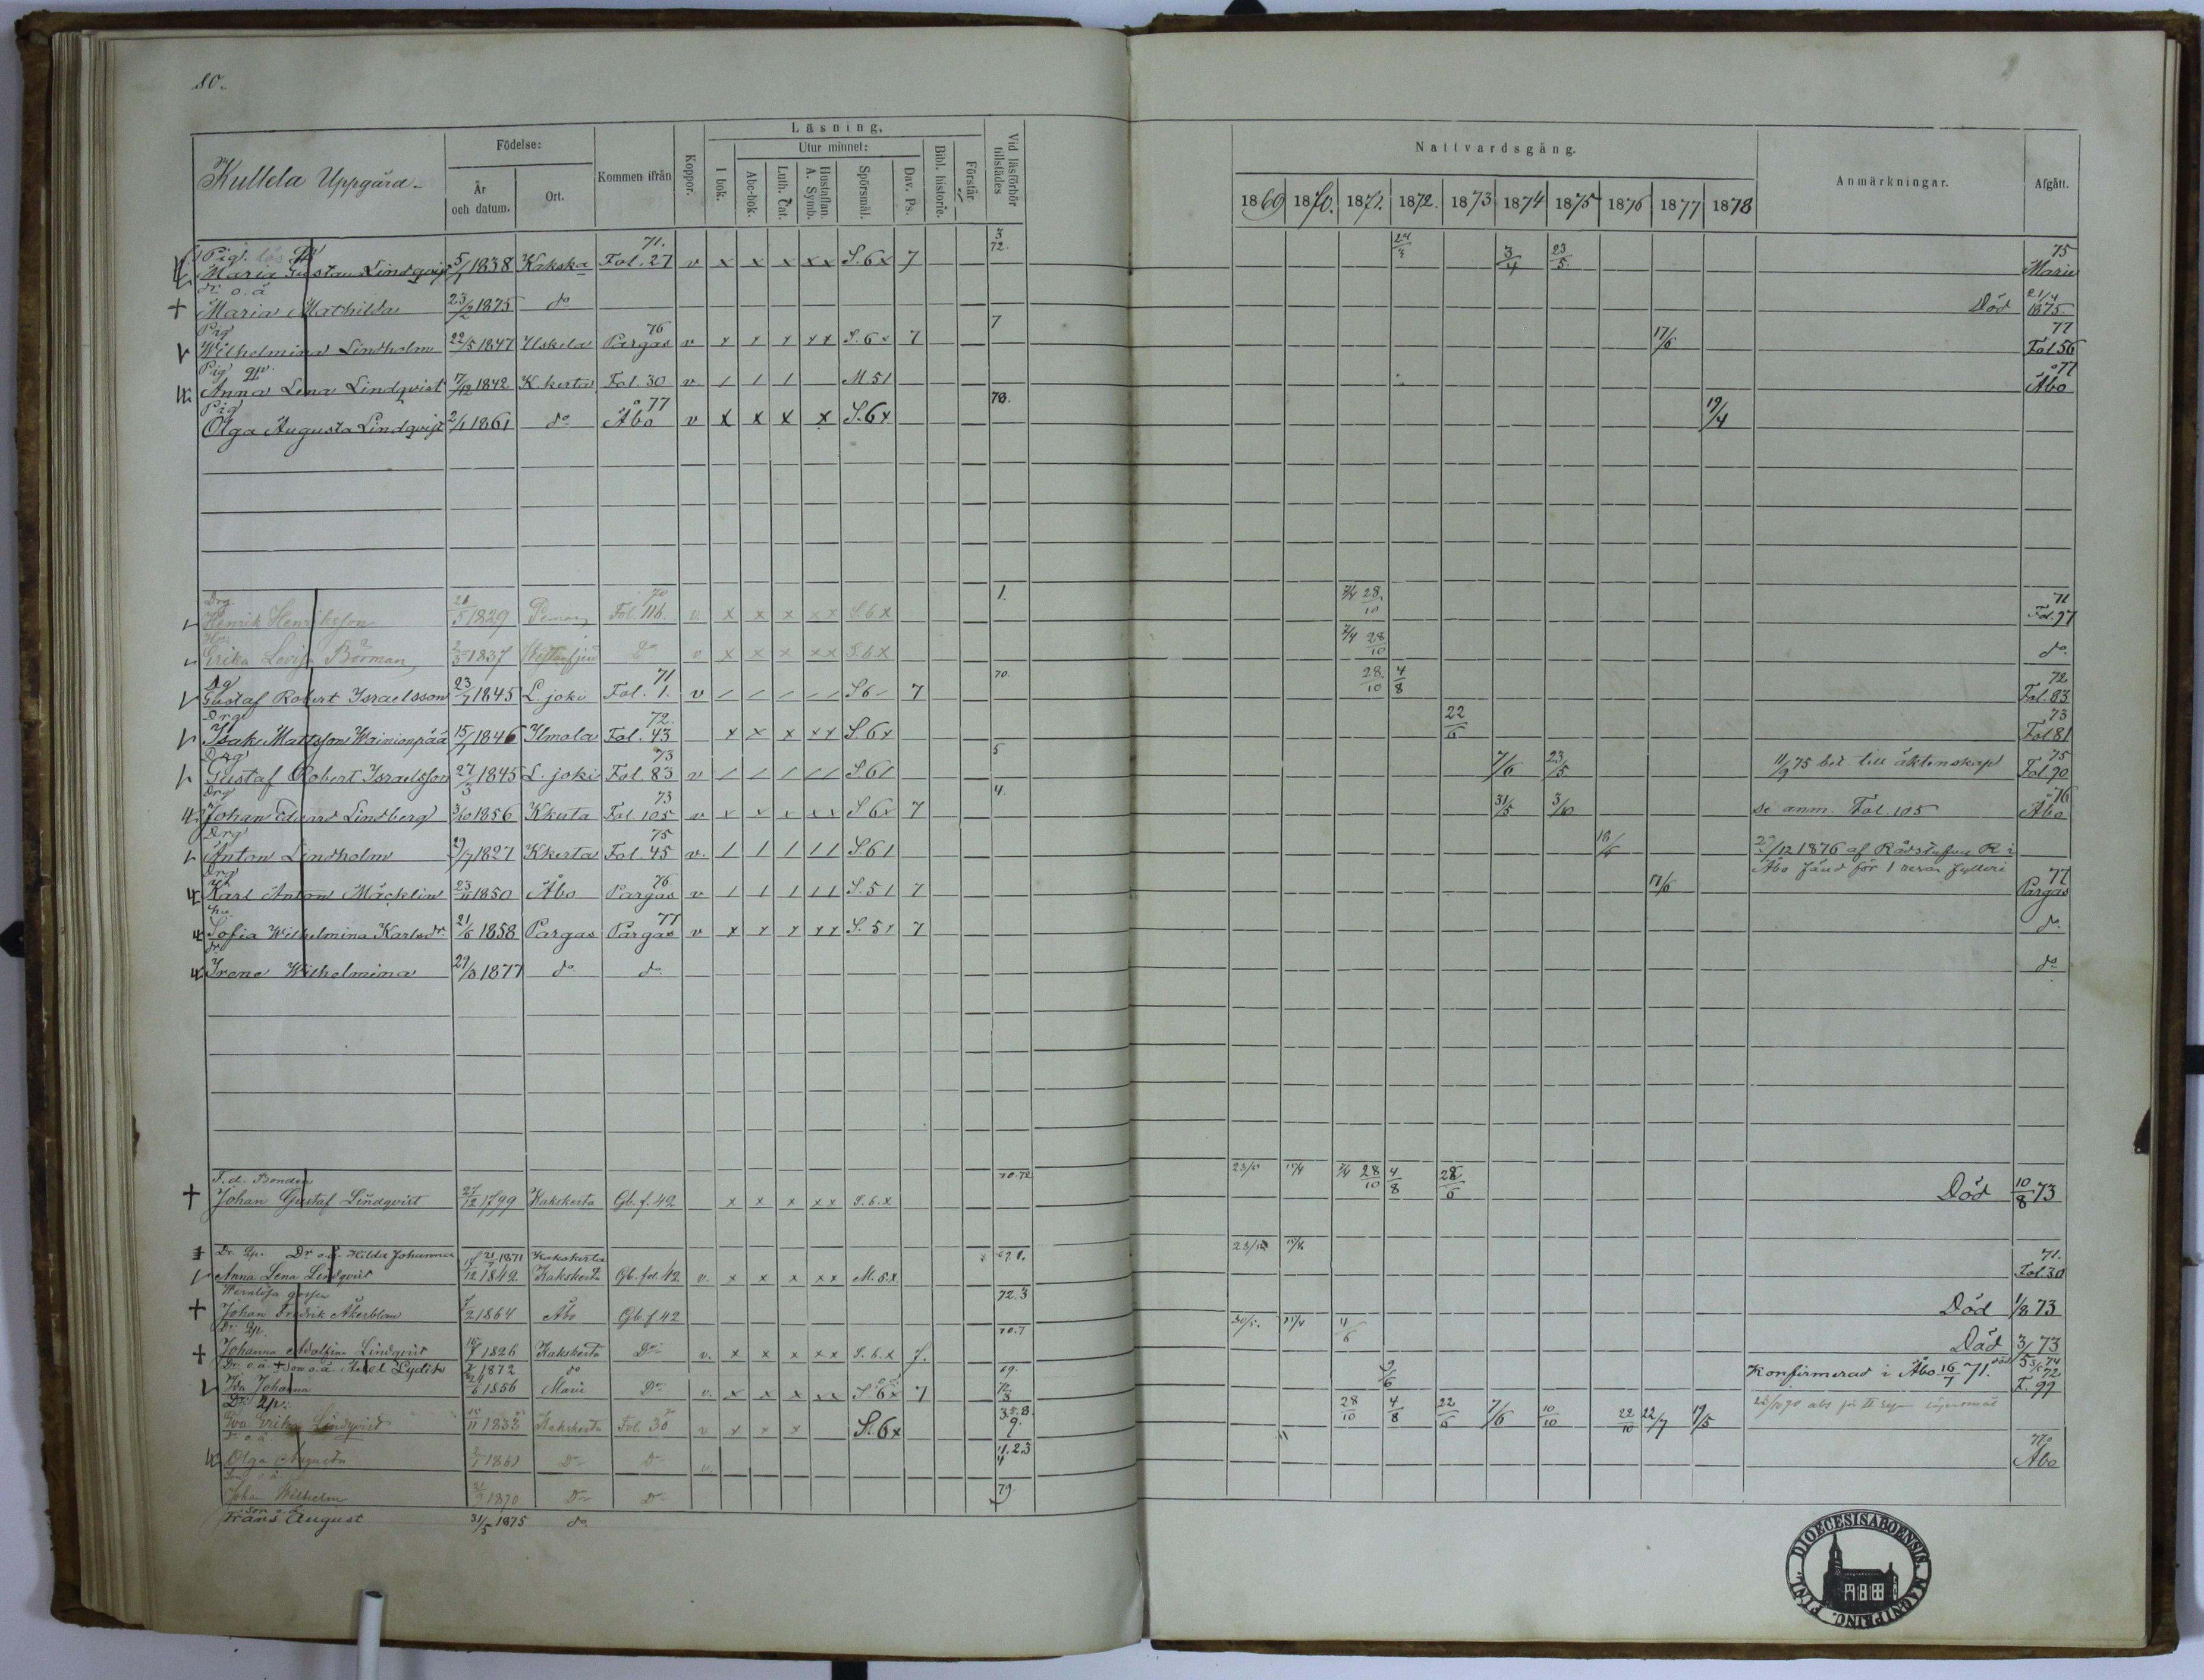 80.
Kullela Uppgård.
Födelse:
År och datum.
Ort.
Kommen ifrån
Koppor.
Läsning,
I bok.
Utur minnet:
Abc-bok.
Luth. Cat.
Hustaflan. A. Symb.
Spörsmål.
Dav. Ps.
Bibl. historie.
Förstår
Vid läsförhör tillstädes
Nattvardsgång.
1869 1870. 1871. 1872. 1873 1874 1875 1876 1877 1878
Anmärkningar.
Afgått.
Pig. 71. 3 72. 24/3 75
Maria Gustava Lindqvist 5/7 1838 Kakska Fol. 27 v x x x x x S. 6 x 7 3/4 23/5 Marie
dr o. ä
Maria Mathilda 23/2 1875 do Död 21/4 1875.
Pig 76 7 77
Wilhelmina Lindholm 22/5 1847 Uskela Pargas v x x x x x S. 6 x 7 17/6 Fol 56
Pig 77
Anna Lena Lindqvist 17/12 1842 K.kerta Fol. 30 v / / / M 5 / Åbo
Pig 77 78.
Olga Augusta Lindqvist 2/1 1861 do Åbo v x x x x S. 6 x 19/4
Drg 70 1. 71
Henrik Henriksson 21/5 1829 Pemar Fol. 116. v. x x x x x S. 6. x 2/4 28/10 Fol. 97
Hu:
Erika Lovisa Börman 2/3 1837 Do v x x x x x S. 6. x 2/4 28/10 do
Dg 71 70. 72
Gustaf Robert Israelsson 23/7 1845 L. joki Fol. 1. v / / / / / S 6 / 7 28/10 4/8 Fol. 83
Drg 72. 73
Isak Mattsson Wainionpää 15/1 1846 Ilmola Fol. 43 x x x x x S. 6 x 22/6 Fol 81
Drg 73 5 75
Gustaf Robert Israelsson 27/3 1845 L. joki Fol 83 v / / / / / S 6 / 7/6 23/5 11/9 75 bet. till äktenskap Fol. 90
Drg 73 4. 76
Johan Edvard Lindberg 3/10 1856 Kkerta Fol. 105 v x x x x x S. 6 x 7 31/5 3/10 se anm. Fol. 105 Åbo
Drg 75
Anton Lindholm 29/7 1827 Kkerta Fol. 45 v. / / / / / S. 6 / 18/6 29/12 1876 af Rådstufvu R i
Åbo för 1 resan fylleri
Drg 76 77
Karl Anton Mäcklin 23/11 1850 Åbo Pargas v / / / / / S. 5 / 7 17/6 Pargas
hu 77
Sofia Wilhelmina Karlsdr. 21/6 1858 Pargas Pargas v x x x x x S. 5 x 7 do
dr
Irene Wilhelmina 29/3 1877 do do do
F.d. Bonden 70.72
Johan Gustaf Lindqvist 27/12 1799 Kakskerta Gb. f. 42 x x x x x S. 6. x 2/4 28/10 4/8 Död 10/8 73
Dr. Qp. Dr o.ä. Hilda Johanna 1871 Kakskerta 71.
Anna Lena Lindqvist 17/12 1842 Kakskerta Gb. fol. 42 v. x x x x x M. 5. x Fol. 30
Wernlösa gossen 72.3
Johan Fredrik Åkerblom 1864 Åbo Gb. f. 42 Död 1/8 73
Dr. Qp. 70.7
Johanna Adolfina Lindqvist 1826 Kakskerta Do v. x x x x x S. 6. x 7. 4/6 Död 3/ 73
Dr. o.ä. Lydia 1872 do
Ida Johanna 1856 Marie Do v. x x x x x S. 6 x 7 9/6 Konfirmerad i Åbo 16/7 71. F. 99
Dr. Qp.
Eva Erika Lindqvist 1833 Kakskerta Fol. 30 v x x x S. 6 x 28/10 4/8 22/6 7/6 10/10 22/10 22/7 19/5
dr o. ä.
Olga Augusta 2/1 1861 Do Do v. Åbo
Son o.ä.
Johan Wilhelm 1870 Do Do 79
Son o. ä.
Frans August 31/5 1875 do
DIOECESIS ABOENSIS. MAGNI PRINC. FINL.